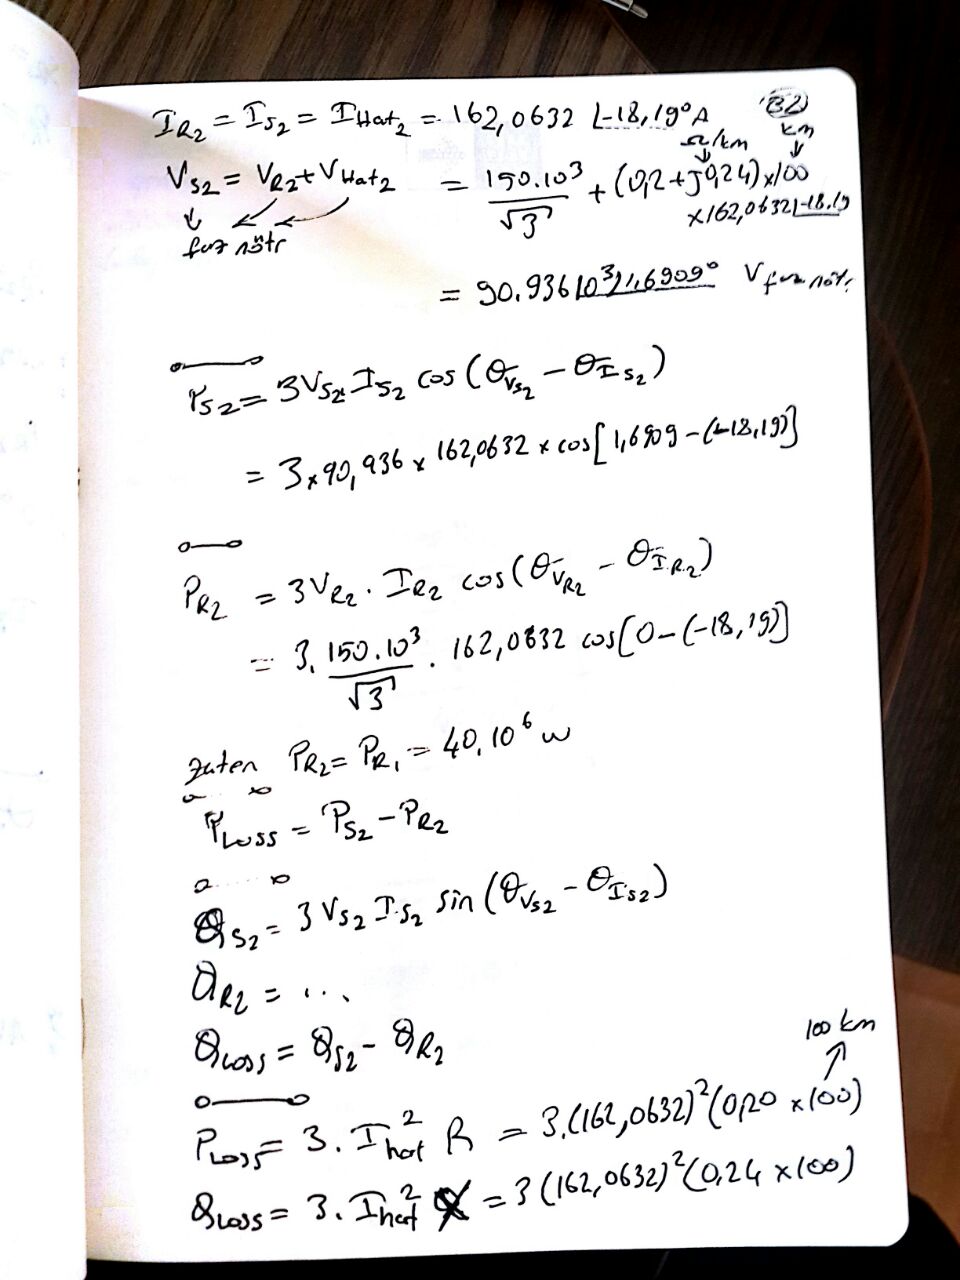 I_R2 = I_S2 = I_Hat2 = 162,0632 ∠-18,19° A
B2
Ω/km km
V_S2 = V_R2 + V_Hat2 = 150.10³/√3 + (0,2+j0,24)x100
x162,0632∠-18.19
faz nötr
= 90.936 10³∠1,6909° V faz nötr.
P_S2 = 3V_S2 I_S2 cos(θ_VS2 - θ_IS2)
= 3x90,936 x 162,0632 x cos[1,6909-(-18,19)]
P_R2 = 3V_R2 . I_R2 cos(θ_VR2 - θ_IR2)
= 3. 150.10³/√3 . 162,0632 cos[0-(-18,19)]
zaten P_R2 = P_R1 = 40.10⁶ w
P_Loss = P_S2 - P_R2
Q_S2 = 3 V_S2 I_S2 sin(θ_VS2 - θ_IS2)
Q_R2 = ...
Q_Loss = Q_S2 - Q_R2
100 km
P_Loss = 3. I_hat² R = 3.(162,0632)²(0,20 x100)
Q_Loss = 3. I_hat² X = 3(162,0632)²(0,24 x100)